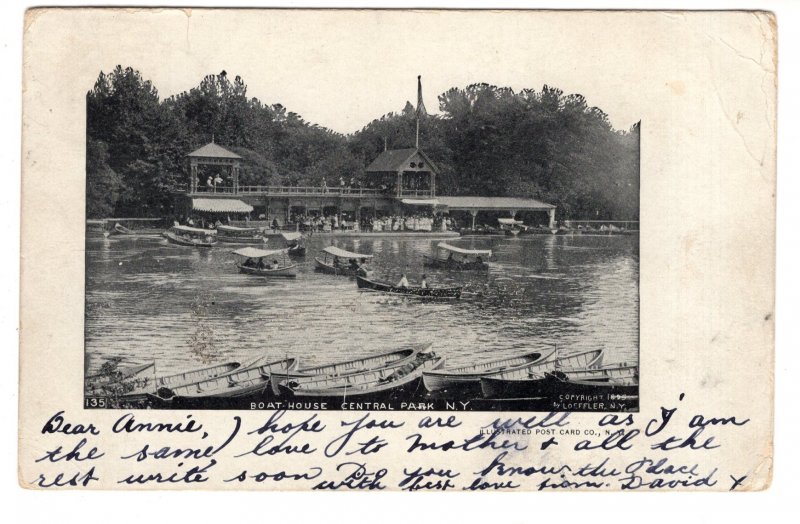 135
BOAT-HOUSE CENTRAL PARK N.Y.
COPYRIGHT
BY LOEFFLER, N.Y.
ILLUSTRATED POST CARD CO., N.Y.
Dear Annie, I hope you are well as I am
the same, love to Mother & all the
rest write soon Do you know the place
with best love from David x